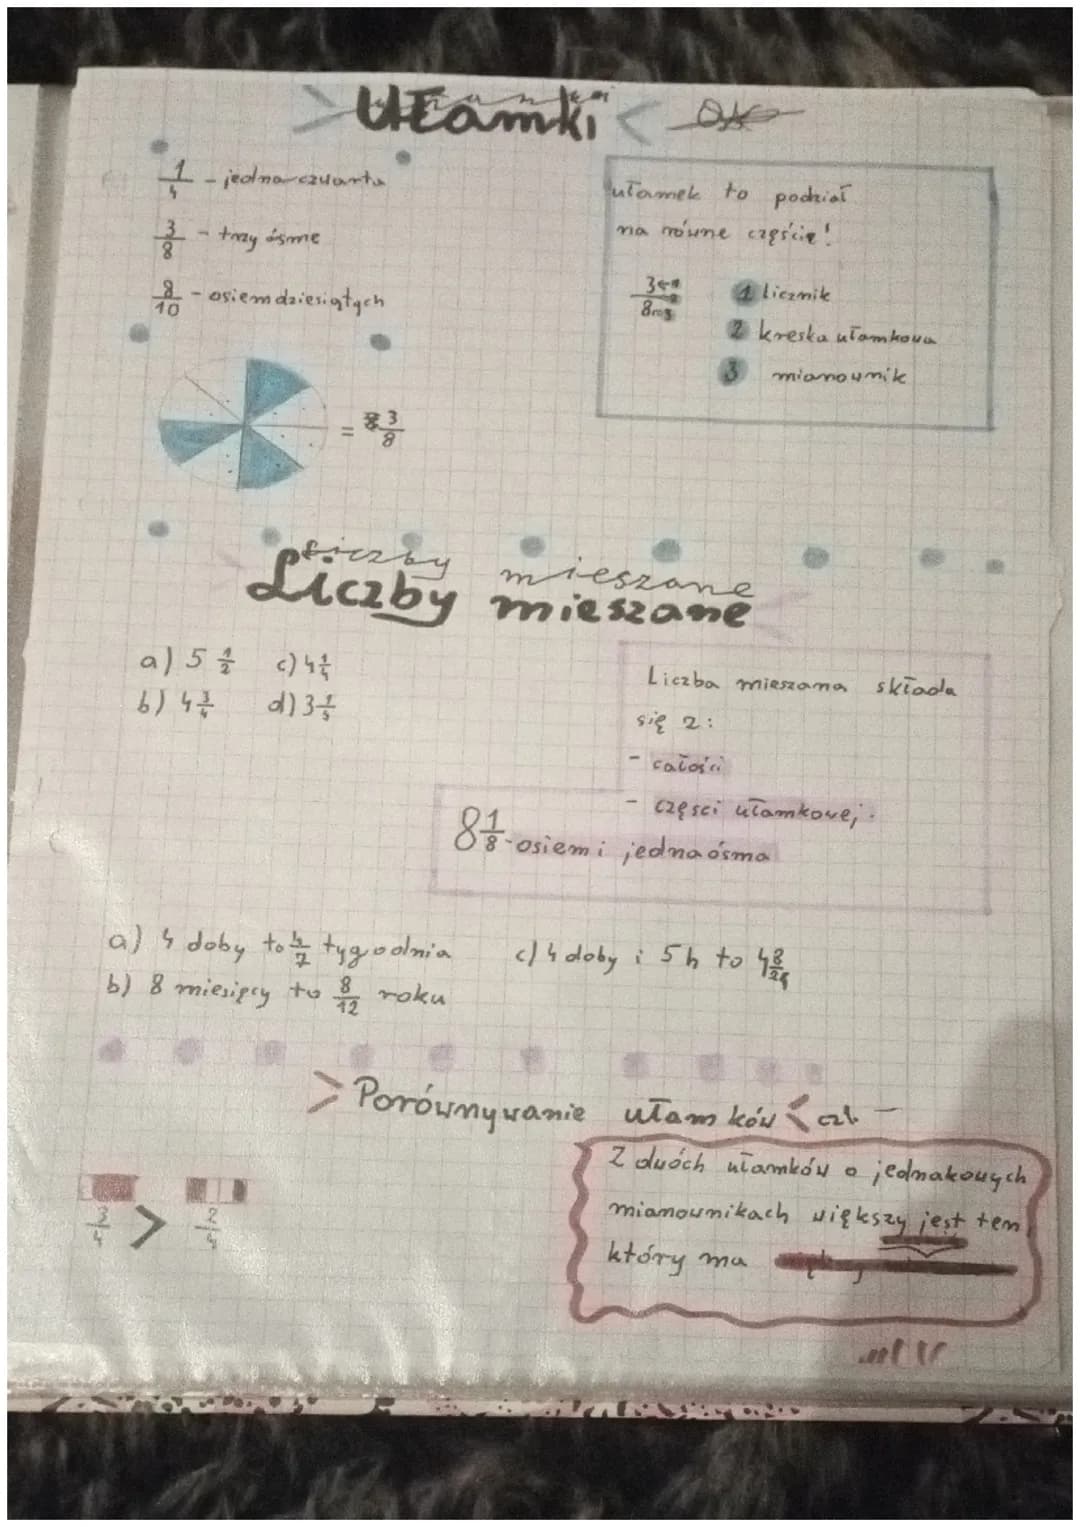 Ułamki
1/4 - jedna czwarta
3/8 - trzy ósme
8/10 - osiem dziesiątych
= 3/8
ułamek to podział
na równe części!
3 ← 1
← 2
8 ← 3
1 licznik
2 kreska ułamkowa
3 mianownik
Liczby mieszane
Liczby mieszane
a) 5 1/2 c) 4 1/4
b) 4 3/4 d) 3 1/5
Liczba mieszana składa
się z:
- całości
- częsci ułamkowej.
8 1/8 - osiem i jedna ósma
a) 4 doby to 4/7 tygodnia c) 4 doby i 5 h to
b) 8 miesięcy to 8/12 roku
> Porównywanie ułamków <
3/4 > 2/4
Z dwóch ułamków o jednakowych
mianownikach większy jest ten
który ma